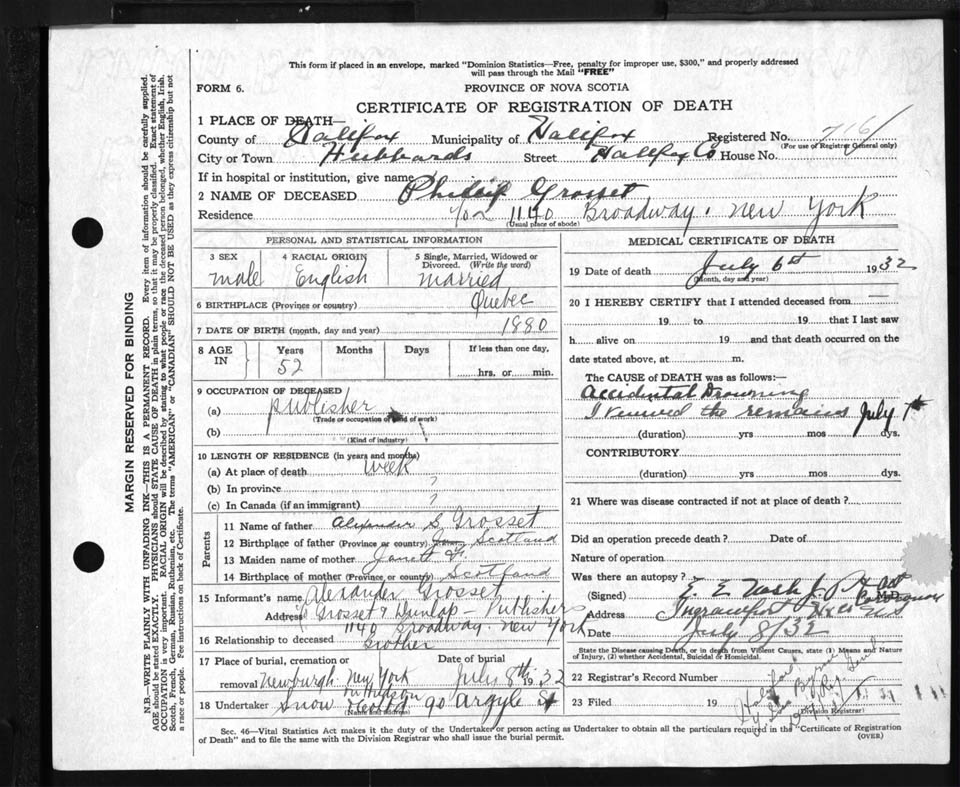 This form if placed in an envelope, marked "Dominion Statistics—Free, penalty for improper use, $300," and properly addressed
will pass through the Mail "FREE"
FORM 6.
PROVINCE OF NOVA SCOTIA
CERTIFICATE OF REGISTRATION OF DEATH
1 PLACE OF DEATH—
County of Halifax Municipality of Halifax Registered No. 716
(For use of Registrar General only)
City or Town Hubbards Street Halifax Co House No.
If in hospital or institution, give name
2 NAME OF DECEASED Phillip Grosset
Residence c/o 1140 Broadway. New York
(Usual place of abode)
PERSONAL AND STATISTICAL INFORMATION
3 SEX 4 RACIAL ORIGIN 5 Single, Married, Widowed or Divorced. (Write the word)
male English Married
6 BIRTHPLACE (Province or country) Quebec
7 DATE OF BIRTH (month, day and year) 1880
8 AGE IN Years Months Days If less than one day,
52 hrs. or min.
9 OCCUPATION OF DECEASED
(a) publisher
(Trade or occupation of kind of work)
(b)
(Kind of industry)
10 LENGTH OF RESIDENCE (in years and months)
(a) At place of death week
(b) In province ?
(c) In Canada (if an immigrant) ?
Parents
11 Name of father Alexander S. Grosset
12 Birthplace of father (Province or country) Scotland
13 Maiden name of mother Janett
14 Birthplace of mother (Province or country) Scotland
15 Informant's name Alexander Grosset
Address Grosset & Dunlap - Publishers
1140 Broadway. New York
16 Relationship to deceased Brother
17 Place of burial, cremation or removal Date of burial
Newburgh New York July 8th 1932
on Hudson
18 Undertaker Snow & Co Ltd 90 Argyle St
(Name and address)
MEDICAL CERTIFICATE OF DEATH
19 Date of death July 6th 1932
(Month, day and year)
20 I HEREBY CERTIFY that I attended deceased from —
19 to 19 that I last saw
h alive on 19 and that death occurred on the
date stated above, at m.
The CAUSE OF DEATH was as follows:—
Accidental Drowning
I viewed the remains July 7th
(duration) yrs mos dys.
CONTRIBUTORY
(duration) yrs mos dys.
21 Where was disease contracted if not at place of death?
Did an operation precede death? Date of
Nature of operation
Was there an autopsy?
(Signed) E. E. Nash J. P. M.D.
Address Ingramport Hx Co N S
Date July 8/32
State the Disease causing Death, or in death from Violent Causes, state (1) Means and Nature
of Injury, (2) whether Accidental, Suicidal or Homicidal.
22 Registrar's Record Number
23 Filed 19
(Division Registrar)
Sec. 46—Vital Statistics Act makes it the duty of the Undertaker or person acting as Undertaker to obtain all the particulars required in the "Certificate of Registration
of Death" and to file the same with the Division Registrar who shall issue the burial permit.
(OVER)
MARGIN RESERVED FOR BINDING
N.B.—WRITE PLAINLY WITH UNFADING INK—THIS IS A PERMANENT RECORD. Every item of information should be carefully supplied.
AGE should be stated EXACTLY. PHYSICIANS should STATE CAUSE OF DEATH in plain terms, so that it may be properly classified. Exact statement of
OCCUPATION is very important. RACIAL ORIGIN will be described by stating to what people or race the deceased person belonged, whether English, Irish,
Scotch, French, German, Russian, Ruthenian, etc. The terms "AMERICAN" or "CANADIAN" SHOULD NOT BE USED as they express citizenship but not
a race or people. See instructions on back of Certificate.